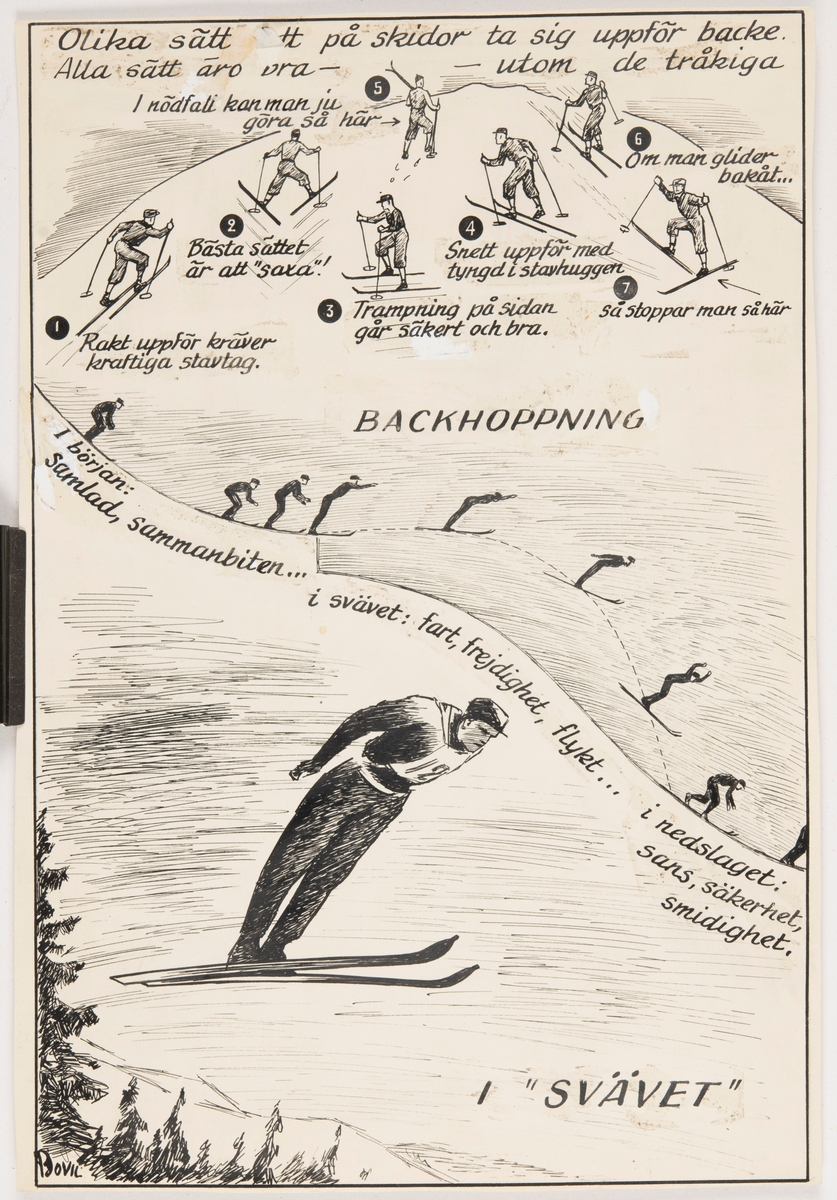 Olika sätt tt på skidor ta sig uppför backe.
Alla sätt äro bra — — utom de tråkiga
I nödfall kan man ju
göra så här →
5
6
Om man glider
bakåt...
2
Bästa sättet
är att "saxa"!
4
Snett uppför med
tyngd i stavhuggen
7
så stoppar man så här
3
Trampning på sidan
går säkert och bra.
1
Rakt uppför kräver
kraftiga stavtag.
BACKHOPPNING
I början:
samlad, sammanbiten...
i svävet: fart, frejdighet, flykt...
i nedslaget:
sans, säkerhet,
smidighet.
I "SVÄVET"
BOVIL